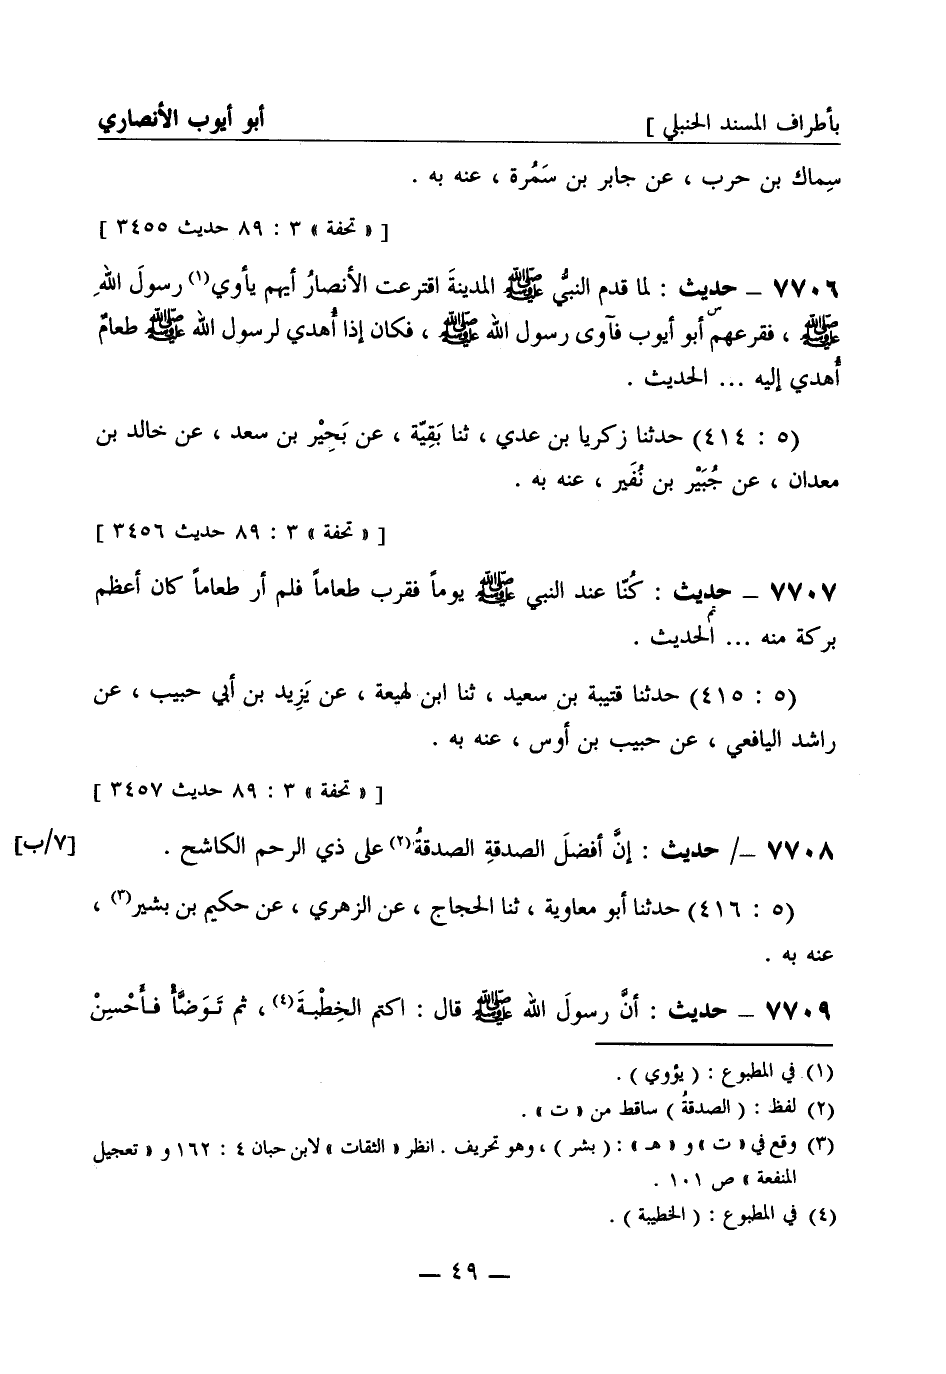 بأطراف المسند الحنبلي ] أبو أيوب الأنصاري
سِماك بن حرب ، عن جابر بن سَمُرة ، عنه به .
[ « تحفة » ٣ : ٨٩ حديث ٣٤٥٥ ]
٧٧٠٦ ـ حديث : لما قدم النبيُّ ﷺ المدينةَ اقترعت الأنصارُ أيهم يأوي(١) رسولَ اللهِ
ﷺ ، فقرعهم أبو أيوب فآوى رسول الله ﷺ ، فكان إذا أُهدي لرسول الله ﷺ طعامٌ
أُهدي إليه ... الحديث .
(٥ : ٤١٤) حدثنا زكريا بن عدي ، ثنا بَقِيّة ، عن بَحِيْر بن سعد ، عن خالد بن
معدان ، عن جُبَيْر بن نُفَير ، عنه به .
[ « تحفة » ٣ : ٨٩ حديث ٣٤٥٦ ]
٧٧٠٧ ـ حديث : كُنّا عند النبي ﷺ يوماً فقرب طعاماً فلم أر طعاماً كان أعظم
بركة منه ... الحديث .
(٥ : ٤١٥) حدثنا قتيبة بن سعيد ، ثنا ابن لهيعة ، عن يَزِيد بن أبي حبيب ، عن
راشد اليافعي ، عن حبيب بن أوس ، عنه به .
[ « تحفة » ٣ : ٨٩ حديث ٣٤٥٧ ]
٧٧٠٨ ـ/ حديث : إنَّ أفضلَ الصدقةِ الصدقةُ(٢) على ذي الرحم الكاشح . [٧/ب]
(٥ : ٤١٦) حدثنا أبو معاوية ، ثنا الحجاج ، عن الزهري ، عن حكيم بن بشير(٣) ،
عنه به .
٧٧٠٩ ـ حديث : أنَّ رسولَ الله ﷺ قال : اكتم الخِطْبـةَ(٤) ، ثم تَـوَضَّأْ فـأَحْسِنْ
(١) في المطبوع : ( يؤوي ) .
(٢) لفظ : ( الصدقةُ ) ساقط من « ت » .
(٣) وقع في « ت » و « هـ » : ( بشر ) ، وهو تحريف . انظر « الثقات » لابن حبان ٤ : ١٦٢ و « تعجيل
المنفعة » ص ١٠١ .
(٤) في المطبوع : ( الخطيبة ) .
ـ ٤٩ ـ